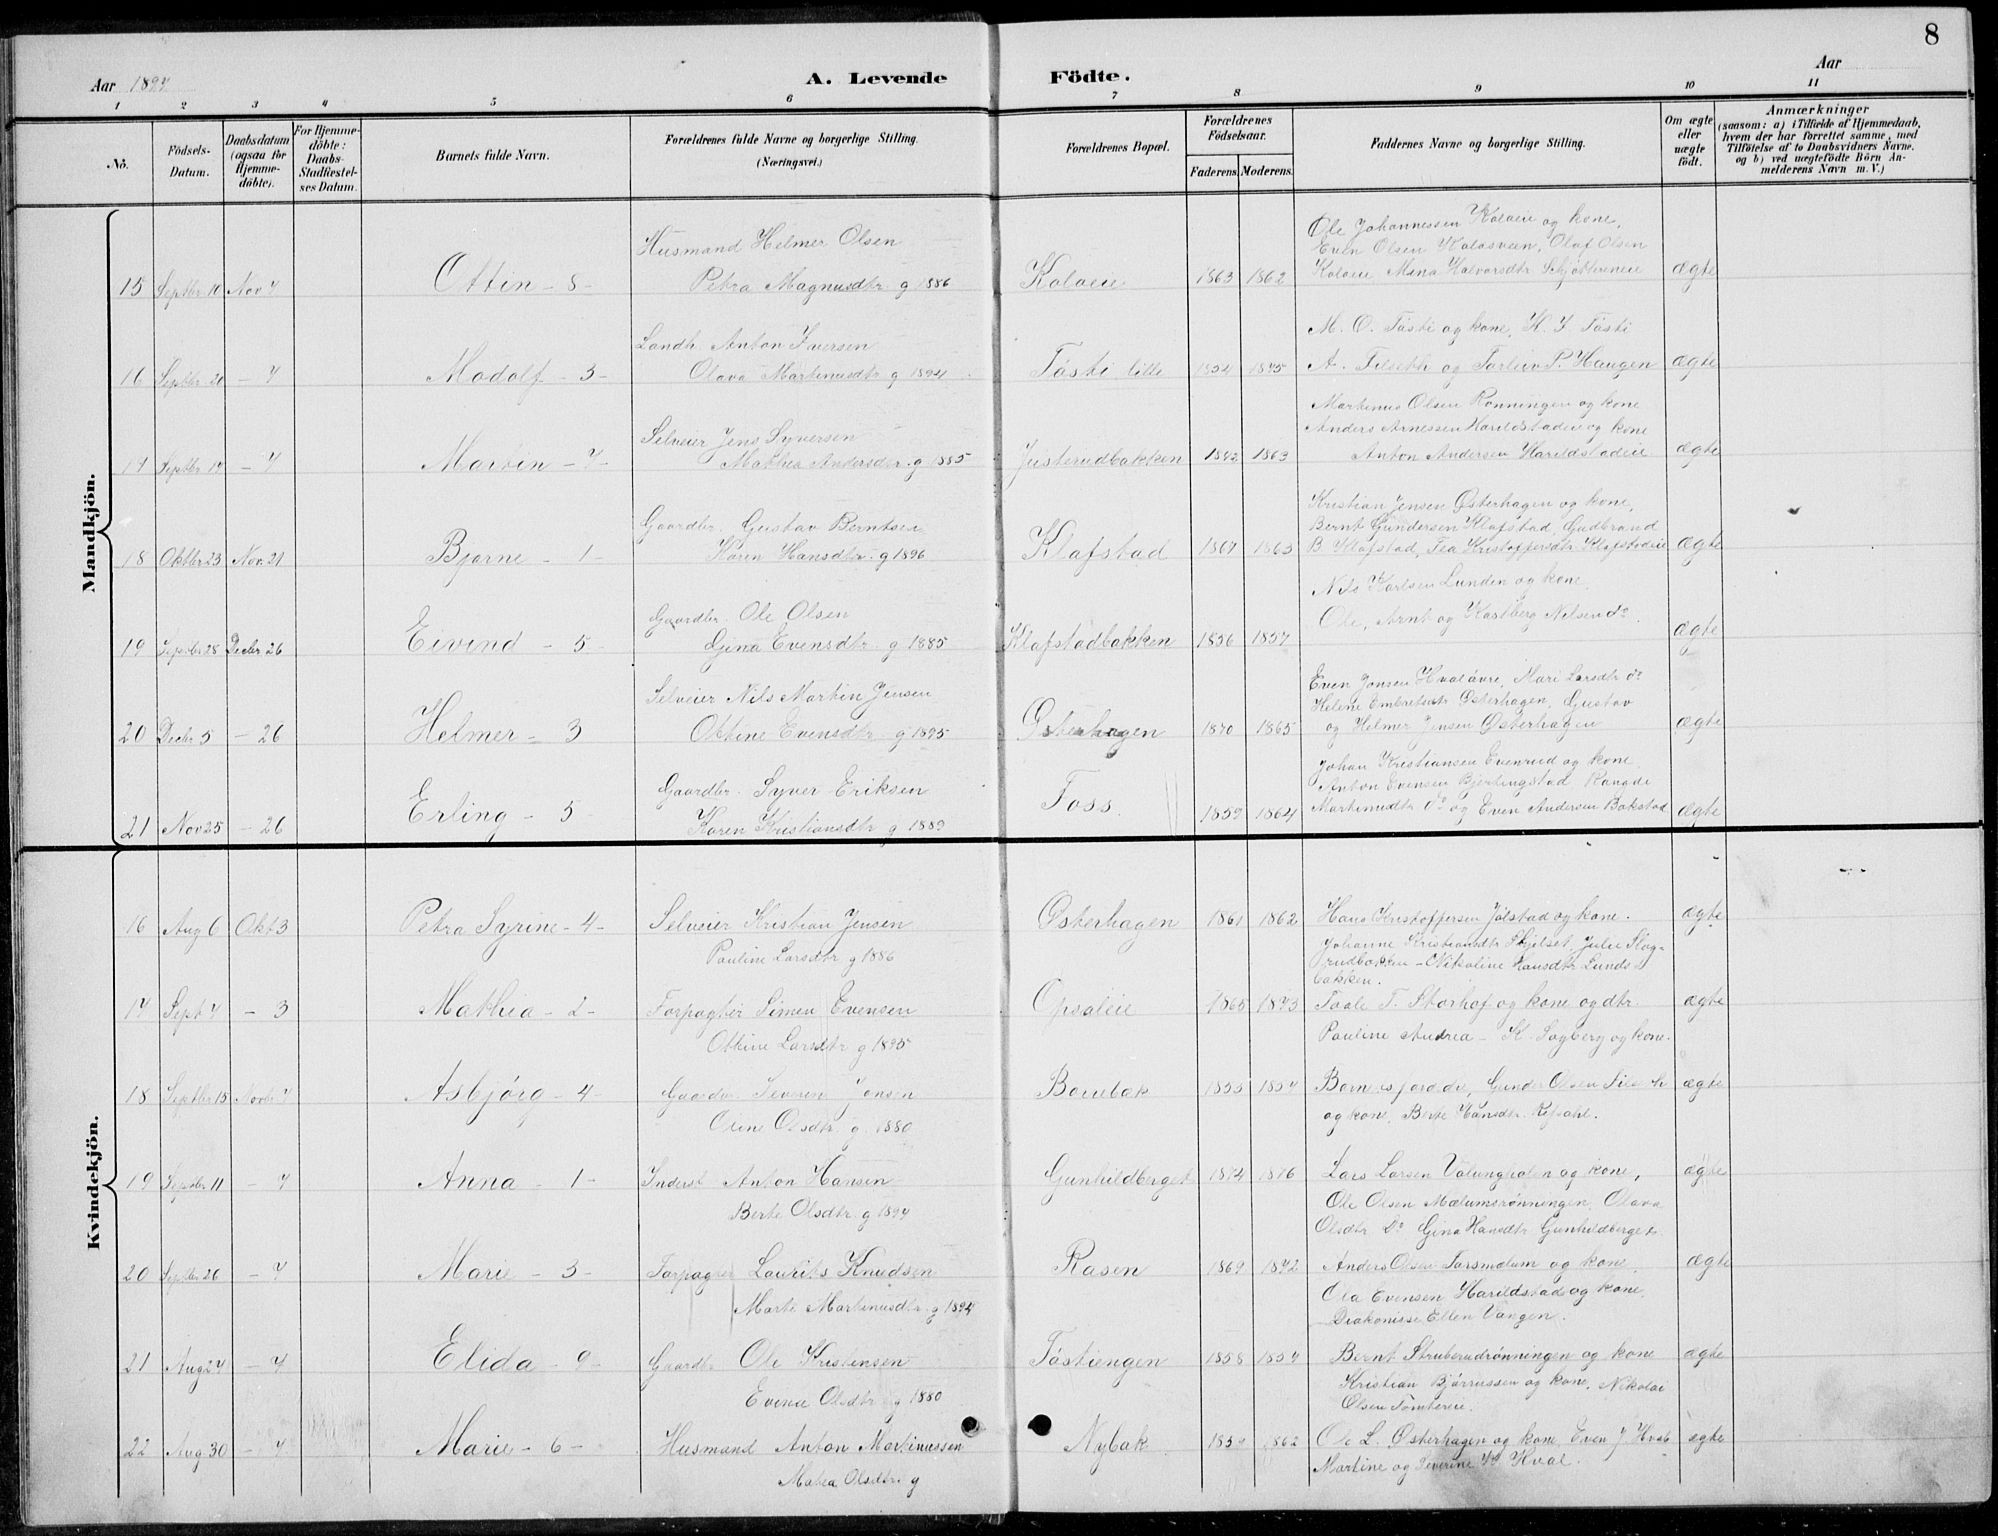 8
Aar 1897
A. Levende Födte.
Aar
1 2 3 4 5 6 7 8 9 10 11
No.
Födsels-Datum.
Daabsdatum (ogsaa for Hjemme-döbte).
For Hjemme-döbte: Daabs-Stadfestel-ses Datum.
Barnets fulde Navn.
Forældrenes fulde Navne og borgerlige Stilling. (Næringsvei.)
Forældrenes Bopæl.
Forældrenes Födselsaar.
Faderens. Moderens.
Faddernes Navne og borgerlige Stilling.
Om ægte eller uægte födt.
Anmærkninger
(saasom: a) i Tilfælde af Hjemmedaab, hvem der har forrettet samme, med Tilföielse af to Daabsvidners Navne. og b) ved uægtefödte Börn An-melderens Navn m. V.)
Mandkjön.
Husmand Helmer Olsen
Ole Johannessen Kolaeie og kone,
Even Olsen Kolosveen, Olaf Olsen
15 Septbr 10 Nov 7 Ottin - 8 - Petra Magnusdtr g 1886 Kolaeie 1863 1862 Kolaeie Mina Halvorsdtr ægte
Landh. Anton Iversen
M. O. Tosti og kone, K. J. Tosti
16 Septbr 20 - 7 Modolf - 3 - Olava Martinusdtr g 1894 Tösti lille 1854 A. Filseth og Torleiv P. Haugen ægte
Martinus Olsen Rønningen og kone
Selveier Jens Syversen
Anders Arnessen Harildstadeie og kone
17 Septbr 14 - 7 Martin - 7 - Mathea Andersdtr g 1885 Justerudbakken 1863 Anton Andersen Harildstadeie ægte
Kristian Jensen Østerhagen og kone,
Gaardbr. Gustav Berntsen
Bernt Gundersen Klafstad Gudbrand
18 Oktbr 23 Nov. 21 Bjarne - 1 - Karen Hansdtr. g 1896 Klafstad 1867 1863 B. Klafstad, Tea Kristoffersdtr Klafstadeie ægte
Nils Karlsen Lunden og kone
Gaardbr. Ole Olsen
Ole, Arnt og Karlberg Nilsen do.
19 Septbr 28 Decbr 26 Eivind - 5 - Gina Evensdtr. g 1885 Klafstadbakken 1856 1857 ægte
Selveier Nils Martin Jensen
Even Jonsen Hvalövre, Mari Larsdtr do
Helene Embretsdtr Østerhagen, Gustav
20 Decbr 5 - 26 Helmer - 3 Ottine Evensdtr. g 1895 Østerhagen 1870 1865 og Helmer Jensen Østerhagen ægte
Johan Kristiansen Evenrud og kone
Gaardbr. Syver Eriksen
Anton Evensen Bjerlingstad
21 Nov 25 - 26 Erling - 5 Karen Kristiansdtr g 1889 Foss 1859 1864 Martinusdtr do og Even Andersen Bakstad ægte
Kvindekjön.
16 Aug 6 Okt 3 Petra Syrine - 4 - Selveier Kristian Jensen Østerhagen 1861 1862 Hans Kristoffersen Jølstad og kone. ægte
Pauline Larsdtr g 1886
Johanne Kristiansdtr Skjelset, Julie Slag-
rudbakken - Nikoline Hansdtr Lunds-
bakken.
17 Sept 7 - 3 Mathea - 2 - Forpagter Simen Evensen Opsaleie 1865 1873 Paale T. Storhof og kone og dtr. ægte
Ottine Larsdtr g 1895
Pauline Andrea - K. Sagberg og kone.
18 Septbr 15 Novbr 7 Asbjörg - 4 - Gaardbr Severin Jensen 1855 1857 Barnets forældre, Gunder Olsen ægte
Oline Olsdtr. g. 1880
og kone, Berte Hansdtr.
19 Septbr 11 - 7 Anna - 1 - Inderst Anton Hansen Gunhildberget 1874 1876 Lars Larsen og kone, ægte
Berte Olsdtr g 1897
Ole Olsen Mælumsrønningen, Olava
Olsdtr Do Gina Hansdtr Gunhildberget.
20 Septbr 26 - 7 Marie - 3 - Forpagter Laurits Knudsen Rasen 1869 1872 Anders Olsen og kone ægte
Marte Martinusdtr. g 1894
Ola Evensen Harildstad og kone,
Diakonisse Ellen Vangen.
21 Aug 27 - 7 Elida - 9 - Gaardbr Ole Kristensen Töstiengen 1858 1857 Bernt Struberudrønningen og kone ægte
Evina Olsdtr g 1880
Kristian og kone, Nikolai
Olsen
22 Aug 30 - 7 Marie - 6 - Husmand Anton Martinussen Nybak 1862 Ole L. Østerhagen og kone Even J. ægte
Matea Olsdtr. g
Martine og Severine Kval.